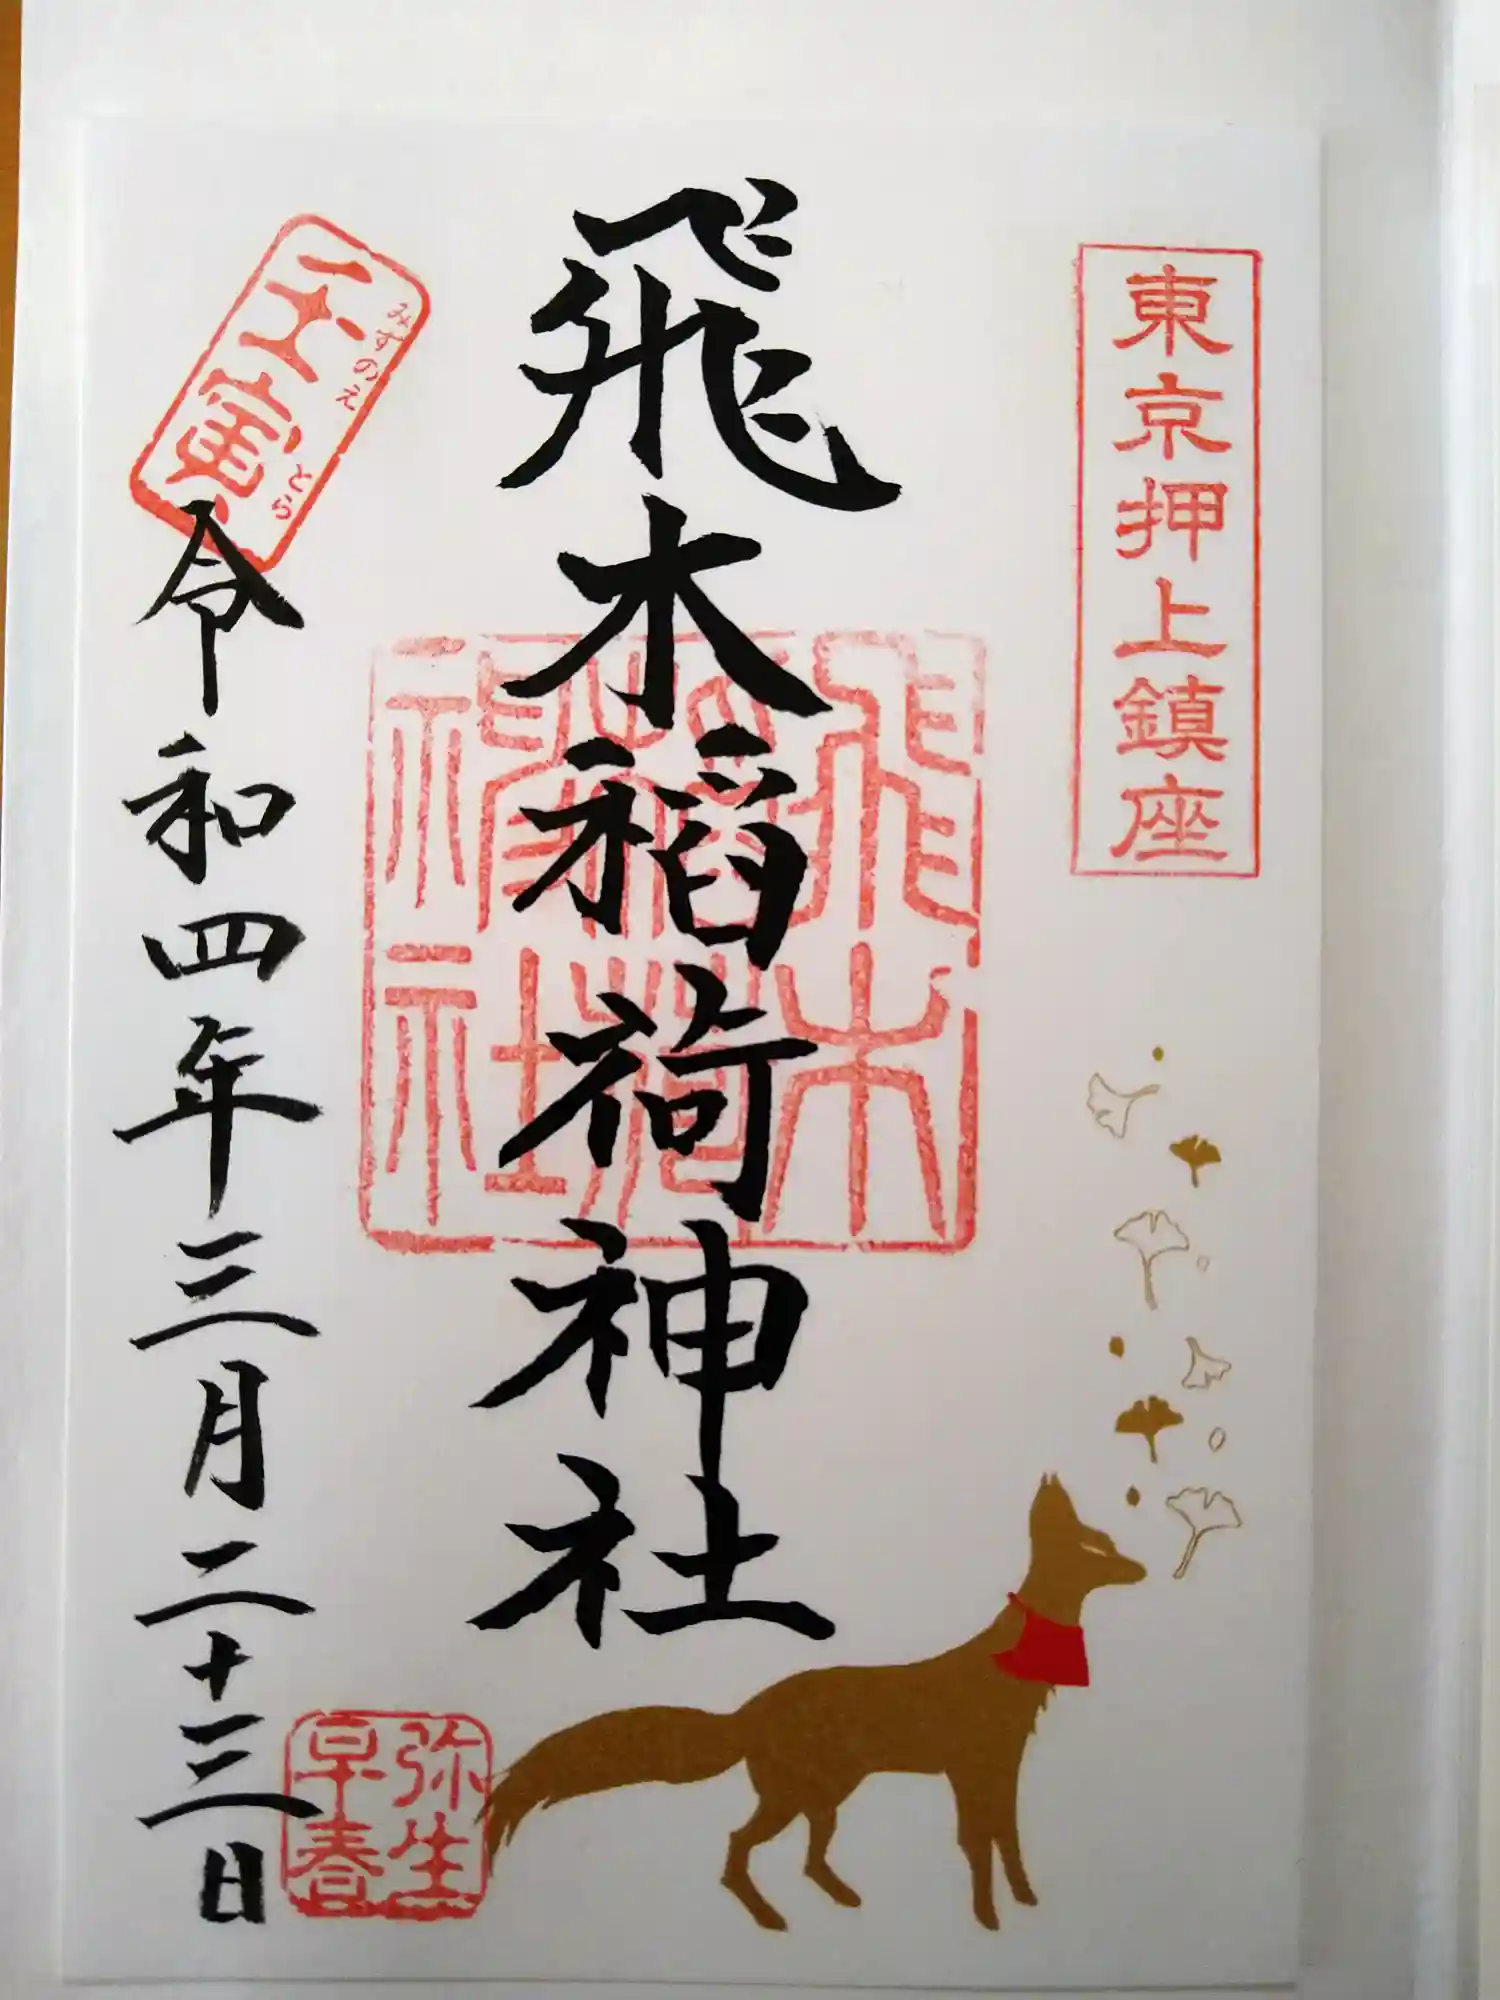 東京押上鎮座
飛木稲荷神社
飛木
稲荷
神社
壬寅
みずのえ
とら
令和四年三月二十三日
弥生
早春